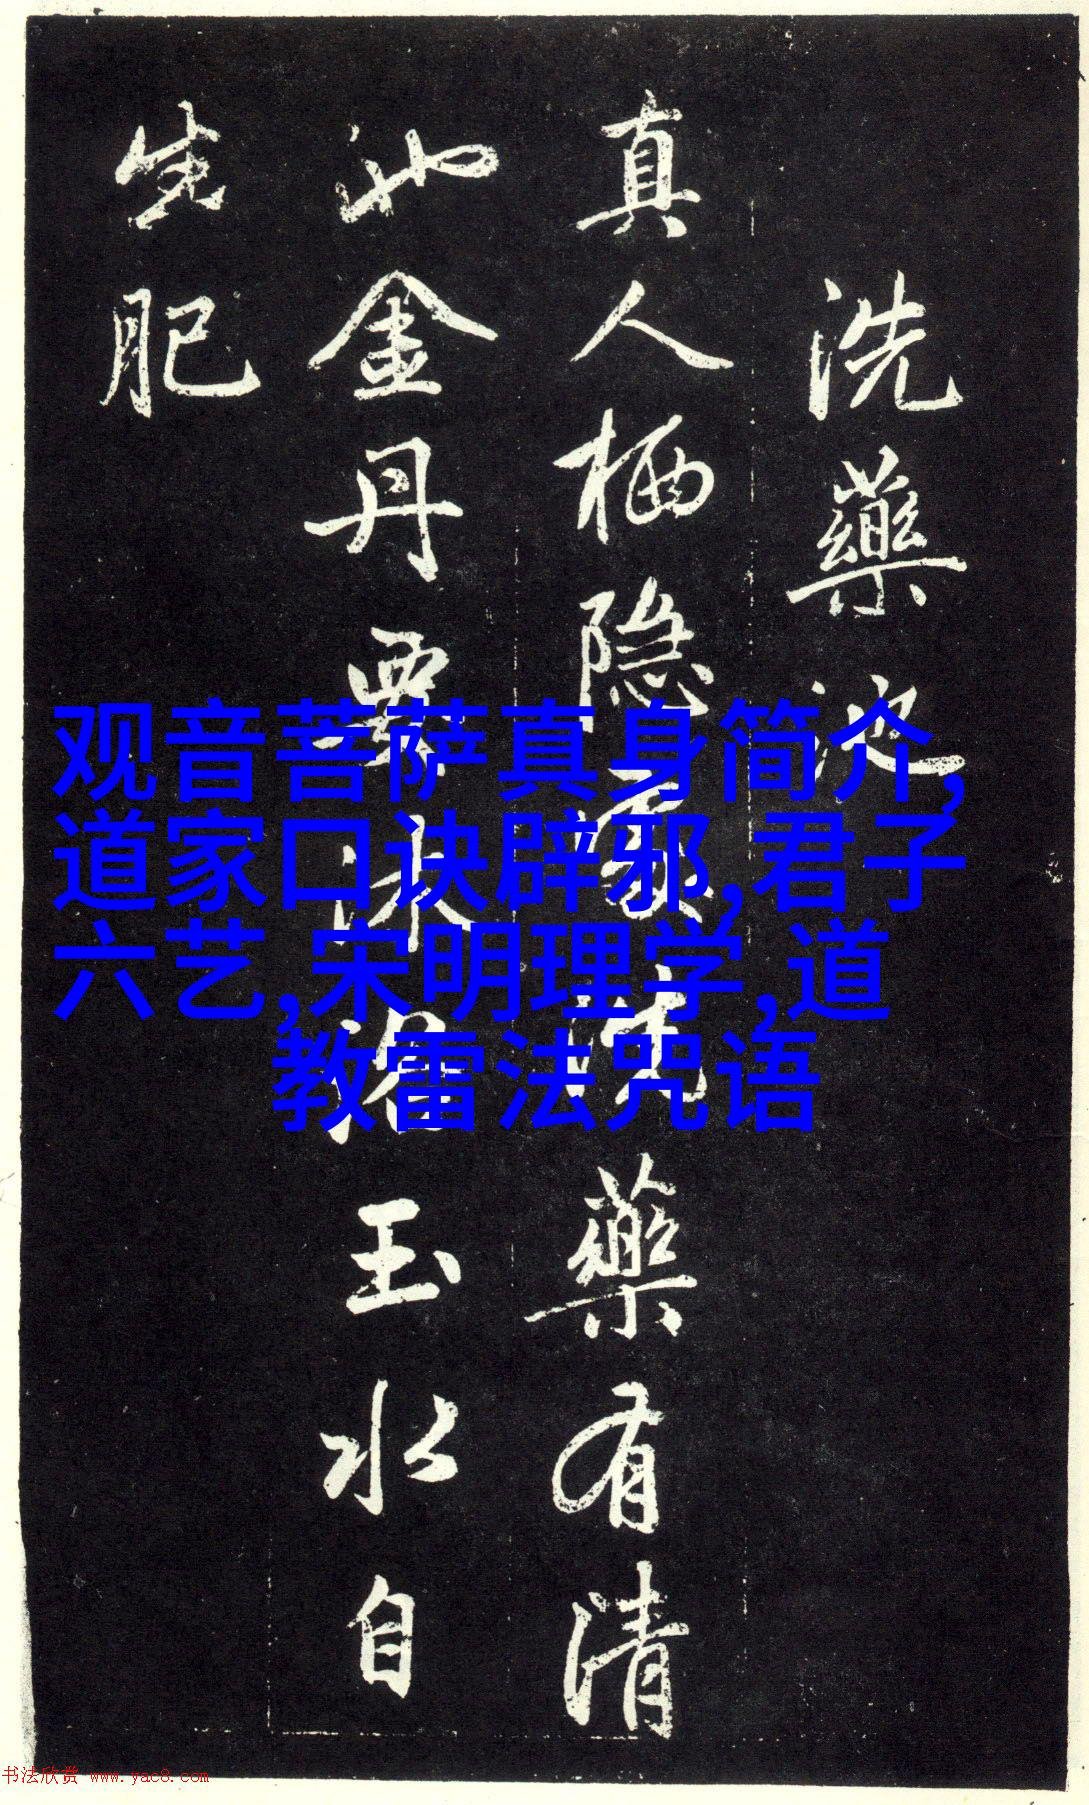 洗藥池
真人栖隐處洗藥有清
池金丹要沐浴玉水自
生肥
观音菩萨真身简介,
道家口诀辟邪,君子
六艺,宋明理学,道
教雷法咒语
书法欣赏 www.yac8.com